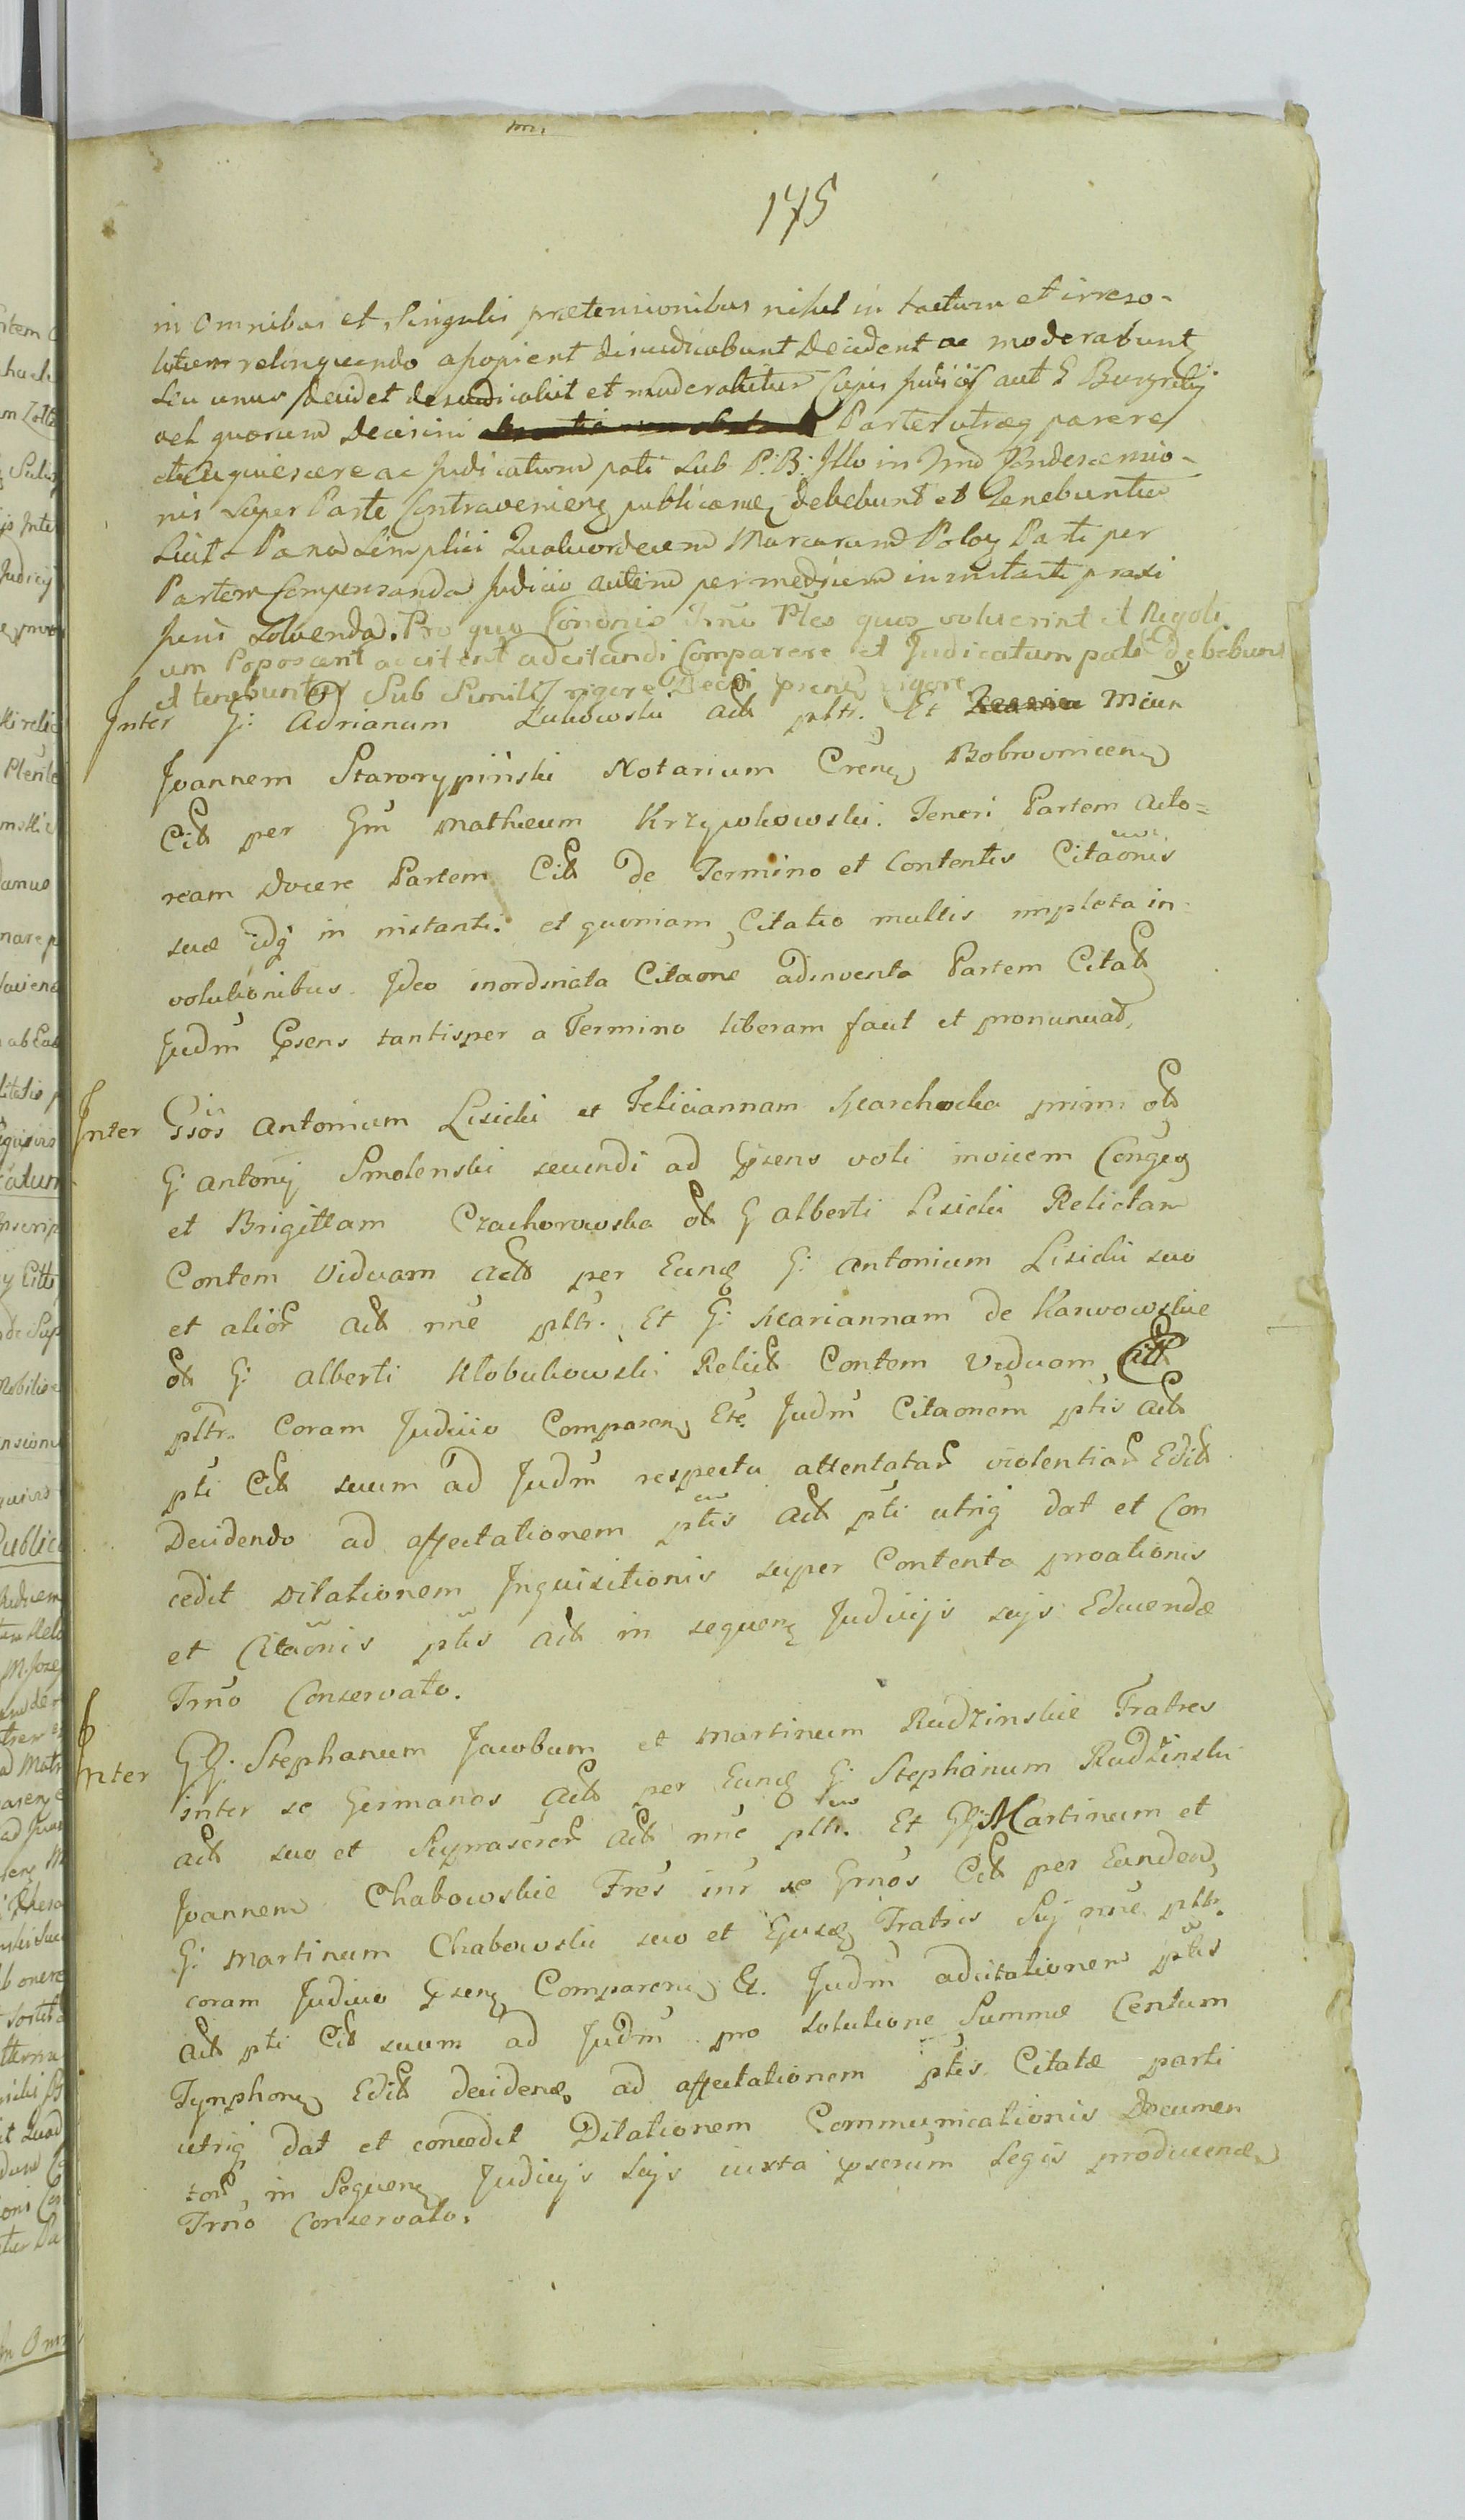 175
in Omnibus et Singulis prætensionibus nihil in tactum et irreso-
lutum relinquendo diiudicabunt Decident ac moderabunt
seu unus decidet et moderabitur Cujus Judicij aut G Burgrabij
vel quorum Decisioni Partes utræq parere
et acquiescere ac Judicatum pati sub P: B: Illo in Trno Condescensio-
nis super Parte Contravenien publicanæ, debebunt et Tenebuntur
Sicut Pæna simplici Quatuordecem Marcarum Polon Parti per
Partem Compensanda Judicio autem per medium in instanti praxi
Juris Solvenda. Pro quo Condnis Trno Ptes quos voluerint et Negoti
um Poposcerit accitent adcitandi Comparere et Judicatum pati debebunt
et tenebuntur Sub Simili rigore Decti præn vigore
Inter G: Adrianum Łukowski act pltr. Et Mcum
Joannem Starorypiński Notarium Cren Bobrovnicen
Cit per Gm Mathæum Krzywkowski. Teneri Partem Acto=
ream Docere Partem Cit de Termino et Contentis Citaonis
suæ idq in instanti. et quoniam Citatio multis impleta in
volutionibus Ideo inordinata Citaone adinventa Partem Citat
Judm Psens tantisper a Termino liberam facit et pronunciat,
Inter Gsos Antonium Lisicki et Feliciannam Marchocka primi ol
G: Antonij Smolenski secundi ad Psens voti invicem Conges
et Brigittam Czachorowska ol G Alberti Lisicki Relictam
Contem Viduam Act per Eund G: Antonium Lisicki suo
et alior Act nne pltr. Et G: Mariannam de Karwowskie
ol G: Alberti Kłobukowski Relict Contem Viduam Citt
pltr. Coram Judicio Comparen Etc Judm Citaonem ptis Act
pti Cit suum ad Judm respectu attentatar violentiar Edit
Decidendo ad affectationem ptis Act pti utriq dat et Con
cedit Dilationem Inquisitionis super Contenta proationis
et Citaonis ptis Act in sequen Judicijs seijs Educendæ
Trno Conservato.
Inter GG. Stephanum Jacobum et Martinum Rudzinskie Fratres
inter se Germanos Act per Eund G: Stephanum Rudzinski
Act suo et Suprascror Act nne pltr. Et GG: Martinum et
Joannem Chabowskie Fres inr se Grnos Cit per Eundem
G: Martinum Chabowski suo et Ejusd Fratris Sui nne pltr.
coram Judicio Psen Comparen Et. Judm adcitationem ptis
Act pti Cit suum ad Judm pro solutione Summæ Centum
Tynphon Edit decidend ad affectationem ptis Citatæ parti
utriq dat et concedit Dilationem Communicationis Documen
tor, in Sequen Judicijs seijs iuxta pscrum Legis producend
Trno Conservato.